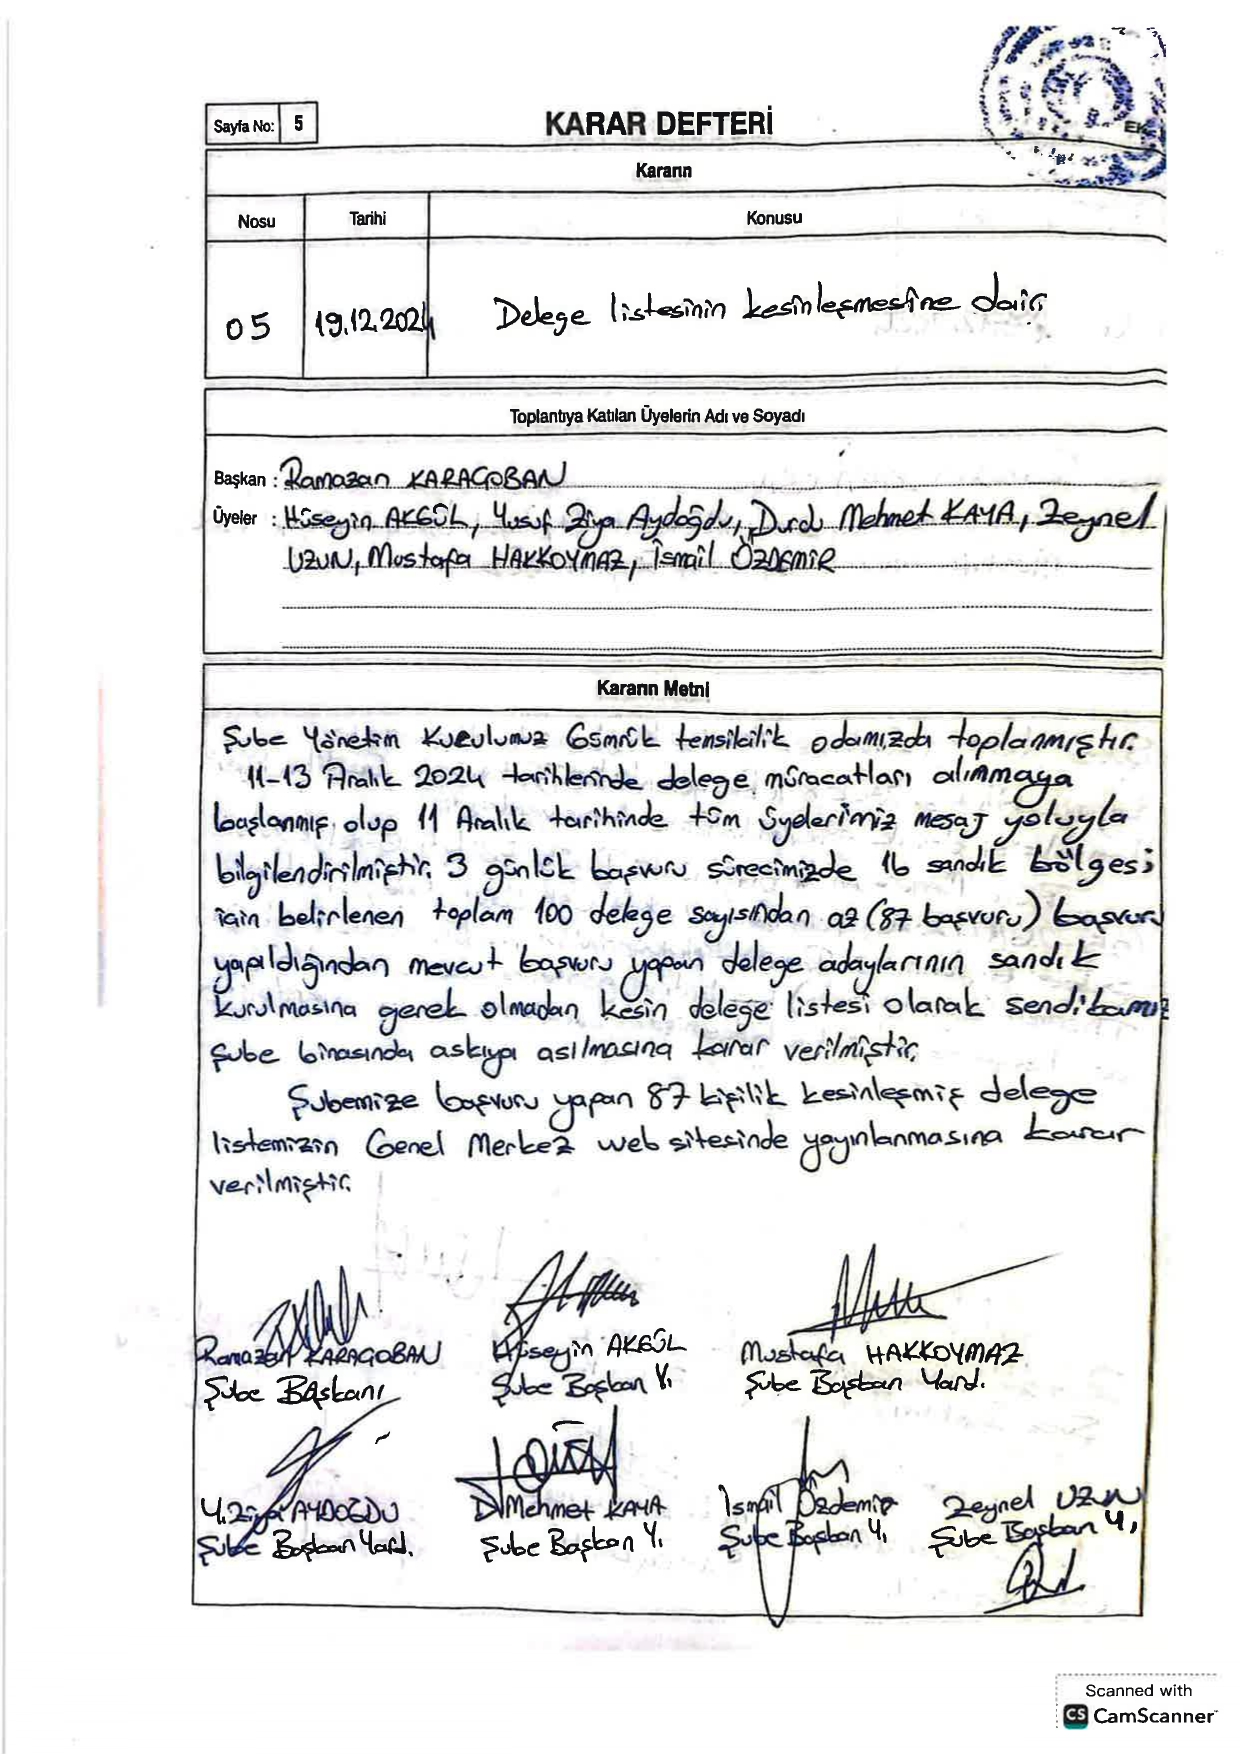 Sayfa No: 5
KARAR DEFTERİ
Kararın
Nosu
Tarihi
Konusu
05
19.12.2024
Delege listesinin kesinleşmesine dair.
Toplantıya Katılan Üyelerin Adı ve Soyadı
Başkan : Ramazan KARAÇOBAN
Üyeler : Hüseyin AKGÜL, Yusuf Ziya Aydoğdu, Durdu Mehmet KAYA, Zeynel
UZUN, Mustafa HAKKOYMAZ, İsmail ÖZDEMİR
Kararın Metni
Şube Yönetim Kurulumuz temsilcilik odamızda toplanmıştır.
11-13 Aralık 2024 tarihlerinde delege müracatları alınmaya
başlanmış olup 11 Aralık tarihinde tüm üyelerimiz mesaj yoluyla
bilgilendirilmiştir. 3 günlük başvuru sürecimizde 16 sandık bölgesi
için belirlenen toplam 100 delege sayısından az (87 başvuru) başvuru
yapıldığından mevcut başvuru yapan delege adaylarının sandık
kurulmasına gerek olmadan kesin delege listesi olarak sendikamız
şube binasında askıya asılmasına karar verilmiştir.
Şubemize başvuru yapan 87 kişilik kesinleşmiş delege
listemizin Genel Merkez web sitesinde yayınlanmasına karar
verilmiştir.
Ramazan KARAÇOBAN Hüseyin AKGÜL Mustafa HAKKOYMAZ
Şube Başkanı Şube Başkan Y. Şube Başkan Yard.
Y. Ziya AYDOĞDU D. Mehmet KAYA İsmail Özdemir Zeynel UZUN
Şube Başkan Yard. Şube Başkan Y. Şube Başkan Y. Şube Başkan Y.
Scanned with
CS CamScanner